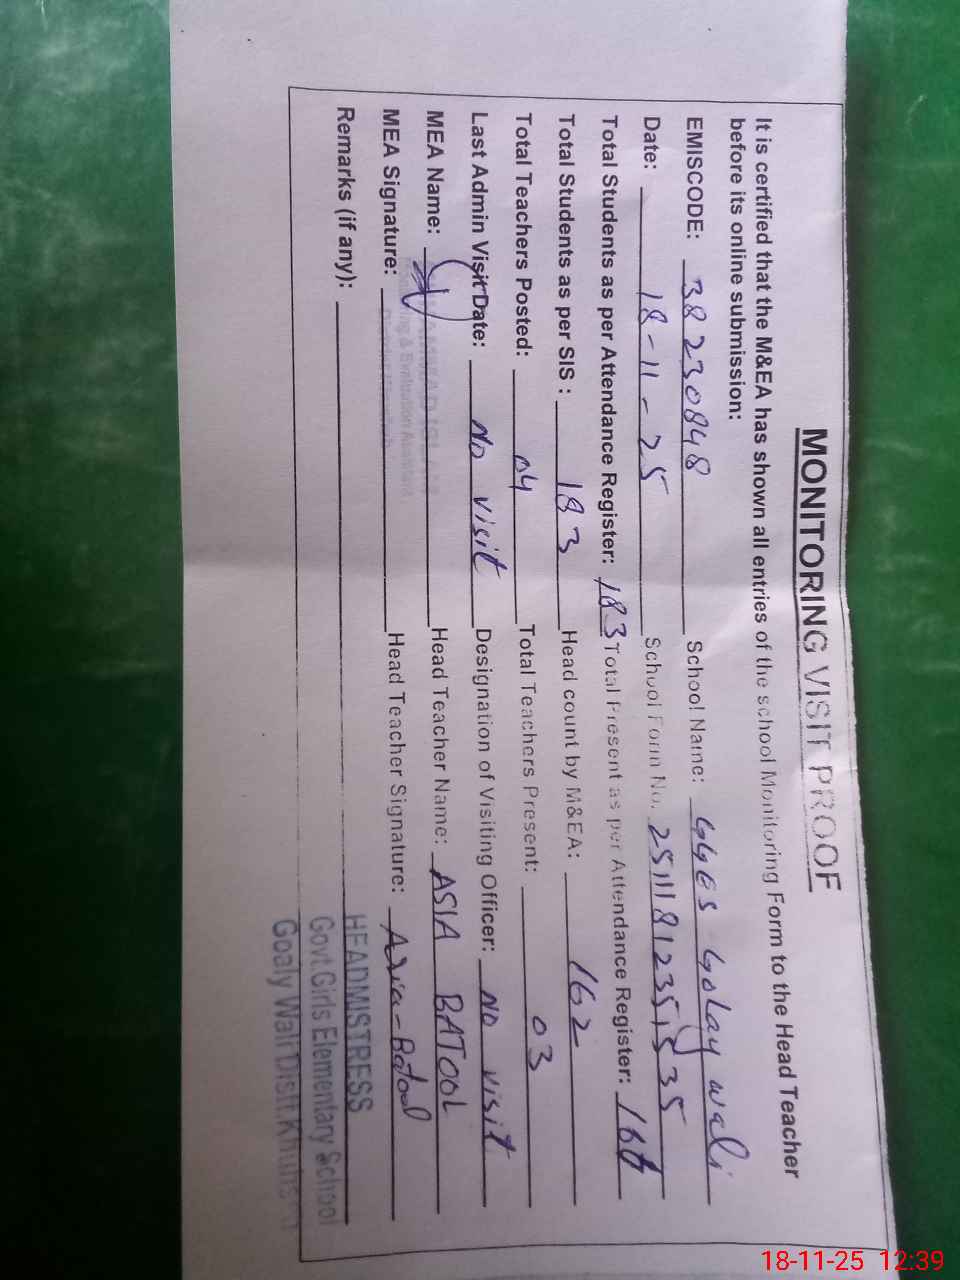 MONITORING VISIT PROOF
It is certified that the M&EA has shown all entries of the school Monitoring Form to the Head Teacher
before its online submission:
EMISCODE: 38230848 School Name: GGES Golay wali
Date: 18-11-25 School Form No.
Total Students as per Attendance Register: 183 Total Present as per Attendance Register:
Total Students as per SIS : 183 Head count by M&EA: 162
Total Teachers Posted: 04 Total Teachers Present: 03
Last Admin Visit Date: No visit Designation of Visiting Officer: No visit
MEA Name: Head Teacher Name: ASIA BATOOL
MEA Signature: Head Teacher Signature: Asia-Batool
Remarks (if any):
& Evaluation Assistant
HEADMISTRESS
Govt.Girls Elementary School
Goaly Wali Distt.
18-11-25 12:39